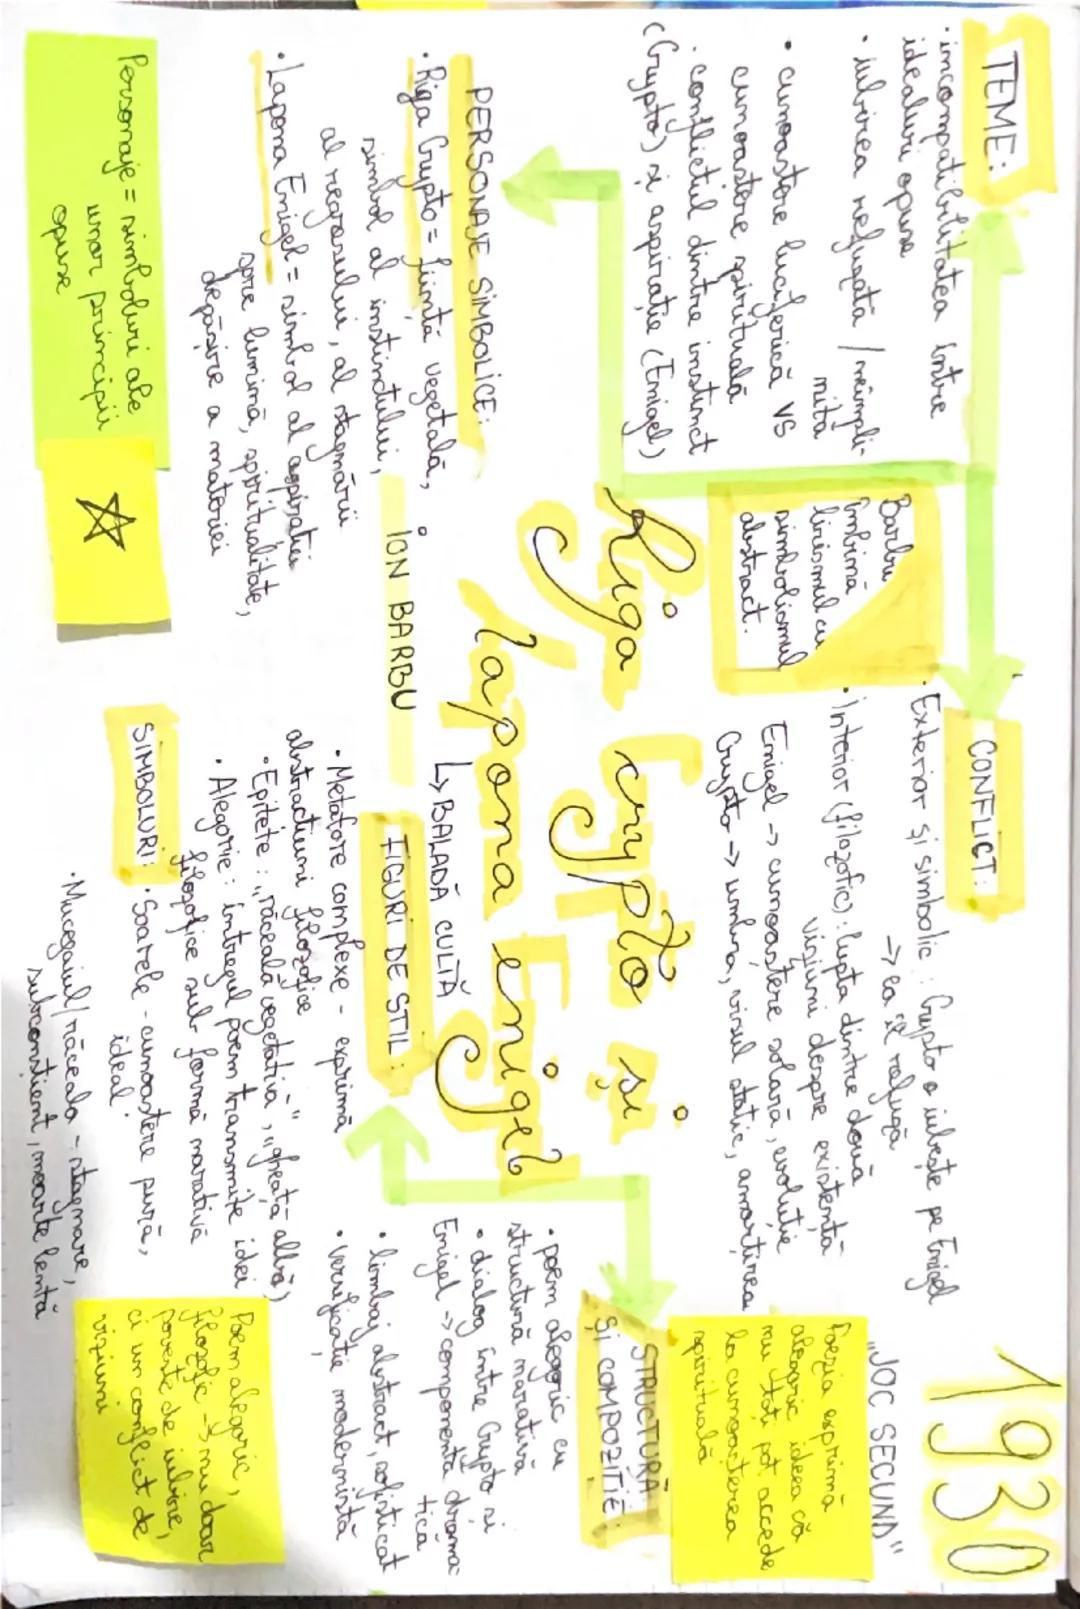 1930
"JOC SECUND"
TEME:
• imcompatibilitatea între
idealuri opuse
• iubirea refuzată / neîmpli-
nită
• cunoastere luciferică VS
cunoastere spirituală
• conflictul dintre instinct
(Crypto) și aspirație (Enigel)
CONFLICT:
• Exterior și simbolic: Crypto o iubește pe Enigel
→ ea îl refuză
• Interior (filozofic): lupta dintre două
viziuni despre existență
Enigel → cunoastere solară, evoluție
Crypto → umbra, visul static, amorțirea
Poezia exprimă
alegoric ideea că
nu toți pot accede
la cunoașterea
spirituală
Barbu
îmbină
lirismul cu
simbolismul
abstract.
Riga Crypto și
lapona Enigel
↳ BALADĂ CULTĂ
ION BARBU
PERSONAJE SIMBOLICE:
• Riga Crypto = ființă vegetală,
simbol al instinctului,
al neajunsului, al stagnării
• Lapona Enigel = simbol al aspirației
spre lumină, spiritualitate,
depășire a materiei
Personaje = simboluri ale
unor principii
opuse
FIGURI DE STIL:
• Metafore complexe - exprimă
abstracțiuni filozofice
• Epitete: „răceală vegetativă", „gheață albă"
• Alegorie: întregul poem transmite idei
filozofice sub formă narativă
SIMBOLURI: • Soarele - cunoaștere pură,
ideal
• Mucegaiul/răceala - stagnare,
subconstient, moarte lentă
STRUCTURĂ
ȘI COMPOZIȚIE:
• poem alegoric cu
structură narativă
• dialog între Crypto și
Enigel → componentă drama-
tică
• limbaj abstract, sofisticat
• versificație modernistă
Poem alegoric,
filozofic → nu doar
poveste de iubire,
ci un conflict de
viziuni